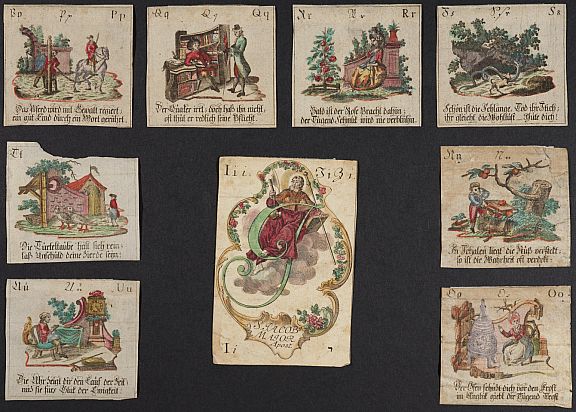 Pp Pp Pp
Das Pferd wird mit Gewalt regiert;
ein gut Kind durch ein Wort gerührt.
Qq Qq Qq
Der Quäker irrt; doch haß ihn nicht,
oft thut er redlich seine Pflicht.
Rr Rr Rr
Bald ist der Rose Pracht dahin;
der Tugend Schmuk wird nie verblühn.
Ss Ss Ss
Schön ist die Schlange, Tod ihr Stich;
ihr gleicht die Wohllust
Hüte dich!
Tt
Die Turteltaube hält sich rein;
laß Unschuld deine Zierde sein.
Iii Ji Ji
S. IACOB
MAIOR
Apost.
Ii
Nn N
In Schalen liegt die Nuß versteckt;
so ist die Wahrheit oft verdekt.
Uu U Uu
Die Uhr zeigt dir den Lauf der Zeit
und sie fürs Glük der Ewigkeit.
Oo O Oo
Der Ofen schüzt dich vor dem Frost
in Unglük giebt die Tugend Trost